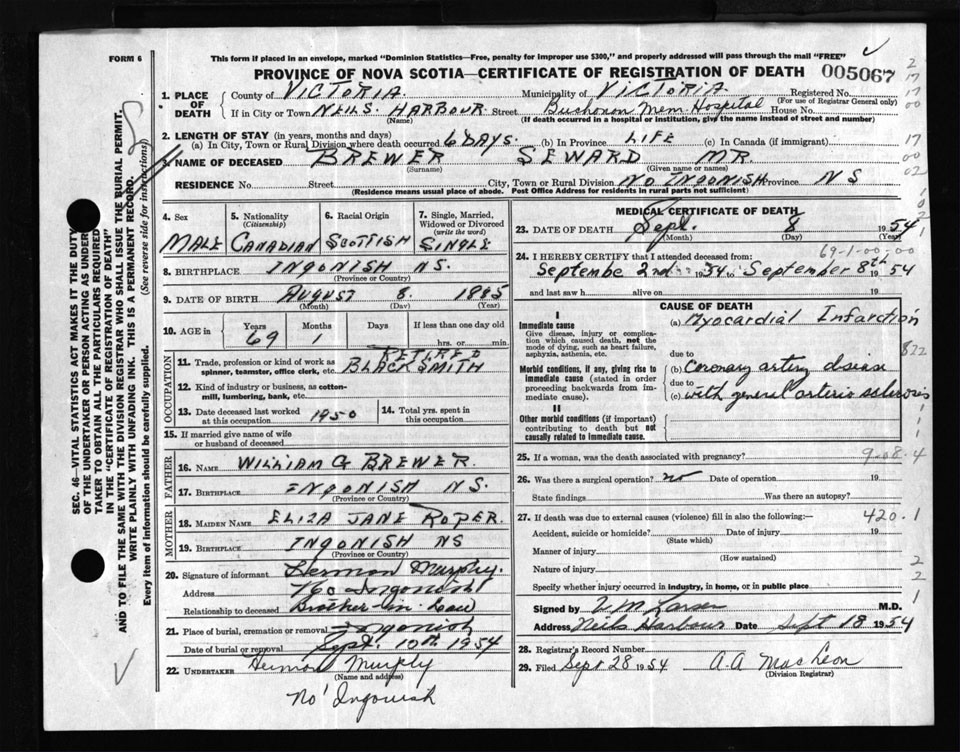 FORM 6
This form if placed in an envelope, marked "Dominion Statistics—Free, penalty for improper use $300," and properly addressed will pass through the mail "FREE"
PROVINCE OF NOVA SCOTIA—CERTIFICATE OF REGISTRATION OF DEATH 005067
1. PLACE OF DEATH
County of VICTORIA Municipality of VICTORIA Registered No.
(For use of Registrar General only)
If in City or Town NEILS HARBOUR Street Mem. Hospital House No.
(Name) (If death occurred in a hospital or institution, give the name instead of street and number)
2. LENGTH OF STAY (in years, months and days)
(a) In City, Town or Rural Division where death occurred 6 DAYS. (b) In Province LIFE (c) In Canada (if immigrant)
3. NAME OF DECEASED BREWER SEWARD MR.
(Surname) (Given name or names)
RESIDENCE No. Street City, Town or Rural Division NO INGONISH Province NS
(Residence means usual place of abode. Post Office Address for residents in rural parts not sufficient)
4. Sex MALE
5. Nationality (Citizenship) CANADIAN
6. Racial Origin SCOTTISH
7. Single, Married, Widowed or Divorced (write the word) SINGLE
8. BIRTHPLACE INGONISH NS.
(Province or Country)
9. DATE OF BIRTH AUGUST 8. 1885
(Month) (Day) (Year)
10. AGE IN Years 69 Months 1 Days If less than one day old hrs. or min.
OCCUPATION
11. Trade, profession or kind of work as spinner, teamster, office clerk, etc. RETIRED BLACKSMITH
12. Kind of industry or business, as cotton-mill, lumbering, bank, etc.
13. Date deceased last worked at this occupation 1950
14. Total yrs. spent in this occupation
15. If married give name of wife or husband of deceased
FATHER
16. NAME WILLIAM G BREWER.
17. BIRTHPLACE INGONISH NS.
(Province or Country)
MOTHER
18. MAIDEN NAME ELIZA JANE ROPER.
19. BIRTHPLACE INGONISH NS
(Province or Country)
20. Signature of informant Herman Murphy.
Address No Ingonish
Relationship to deceased Brother-in-law
21. Place of burial, cremation or removal Ingonish
Date of burial or removal Sept. 10th 1954
22. UNDERTAKER Herman Murphy
(Name and address)
No Ingonish
MEDICAL CERTIFICATE OF DEATH
23. DATE OF DEATH Sept. 8 1954
(Month) (Day) (Year)
69-1-00-00
24. I HEREBY CERTIFY that I attended deceased from
Septembe 2nd 1954 to September 8th 1954
and last saw h alive on 19
CAUSE OF DEATH
I
Immediate cause
Give disease, injury or complication which caused death, not the mode of dying, such as heart failure, asphyxia, asthenia, etc.
(a) Myocardial Infarction
due to
Morbid conditions, if any, giving rise to immediate cause (stated in order proceeding backwards from immediate cause).
(b) Coronary artery disease
due to
(c) with general arterio sclerosis
II
Other morbid conditions (if important) contributing to death but not causally related to immediate cause.
25. If a woman, was the death associated with pregnancy?
9-08-4
26. Was there a surgical operation? no Date of operation 19
State findings Was there an autopsy?
27. If death was due to external causes (violence) fill in also the following:— 420.1
Accident, suicide or homicide? Date of injury 19
(State which)
Manner of injury
(How sustained)
Nature of injury
Specify whether injury occurred in industry, in home, or in public place
Signed by V. M. Larsen M.D.
Address Neils Harbour Date Sept 18 1954
28. Registrar's Record Number
29. Filed Sept 28 1954 A A MacLeon
(Division Registrar)
SEC. 46—VITAL STATISTICS ACT MAKES IT THE DUTY
OF THE UNDERTAKER OR PERSON ACTING AS UNDER-
TAKER TO OBTAIN ALL THE PARTICULARS REQUIRED
IN THE "CERTIFICATE OF REGISTRATION OF DEATH"
AND TO FILE THE SAME WITH THE DIVISION REGISTRAR WHO SHALL ISSUE THE BURIAL PERMIT.
WRITE PLAINLY WITH UNFADING INK. THIS IS A PERMANENT RECORD.
Every item of information should be carefully supplied. (See reverse side for instructions)